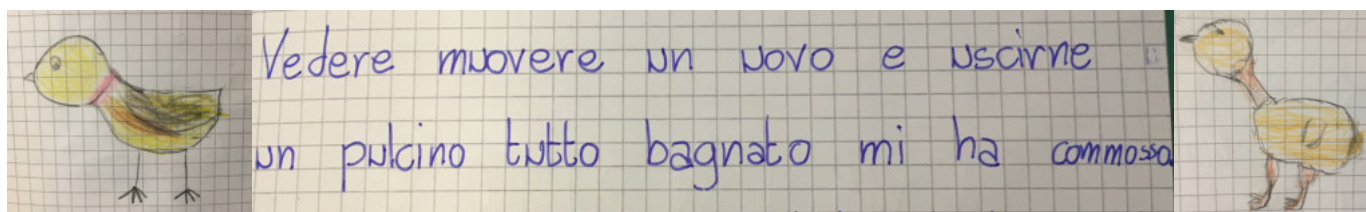 Vedere muovere un uovo e uscirne
un pulcino tutto bagnato mi ha commossa